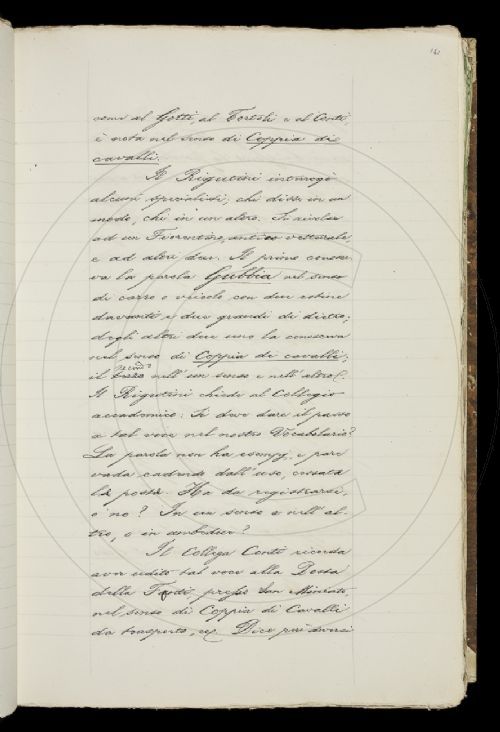 come al Gotti, al Tortoli e al Conti
è nota nel senso di Coppia di
cavalli.
Il Rigutini interrogò
alcuni specialisti, chi disse in un
modo, chi in un altro. Si rivolse
ad un Fiorentino, antico vetturale,
e ad altri due. Il primo conosce-
va la parola Gubbia nel senso
di carro o veicolo con due rotine
davanti e due grandi di dietro;
degli altri due uno la conosceva
nel senso di Coppia di cavalli;
il secondo nell'un senso e nell'altro.
Il Rigutini chiede al Collegio
accademico: Si deve dare il passo
a tal voce nel nostro Vocabolario?
La parola non ha esempj, e pare
vada cadendo dall'uso, cessata
la posta. Ha da registrarsi,
o no? In un senso o nell'al-
tro, o in ambedue?
Il Collega Conti ricorda
aver udito tal voce alla Posta
della presso San Miniato
nel senso di Coppia di Cavalli
da trasporto, ec. Dice poi doversi